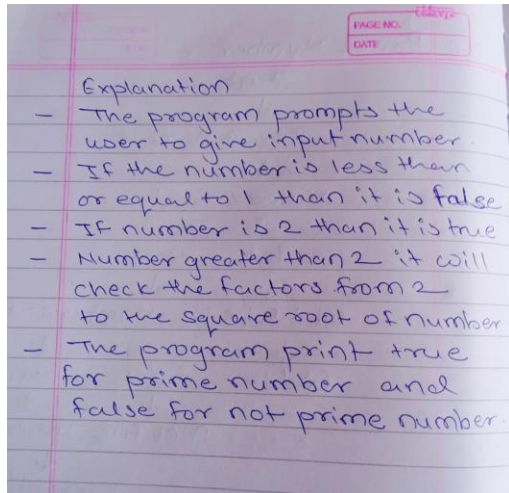 PAGE NO.
DATE
Explanation
- The program prompts the
user to give input number.
- If the number is less than
or equal to 1 than it is false
- If number is 2 than it is true
- Number greater than 2 it will
check the factors from 2
to the square root of number
- The program print true
for prime number and
false for not prime number.